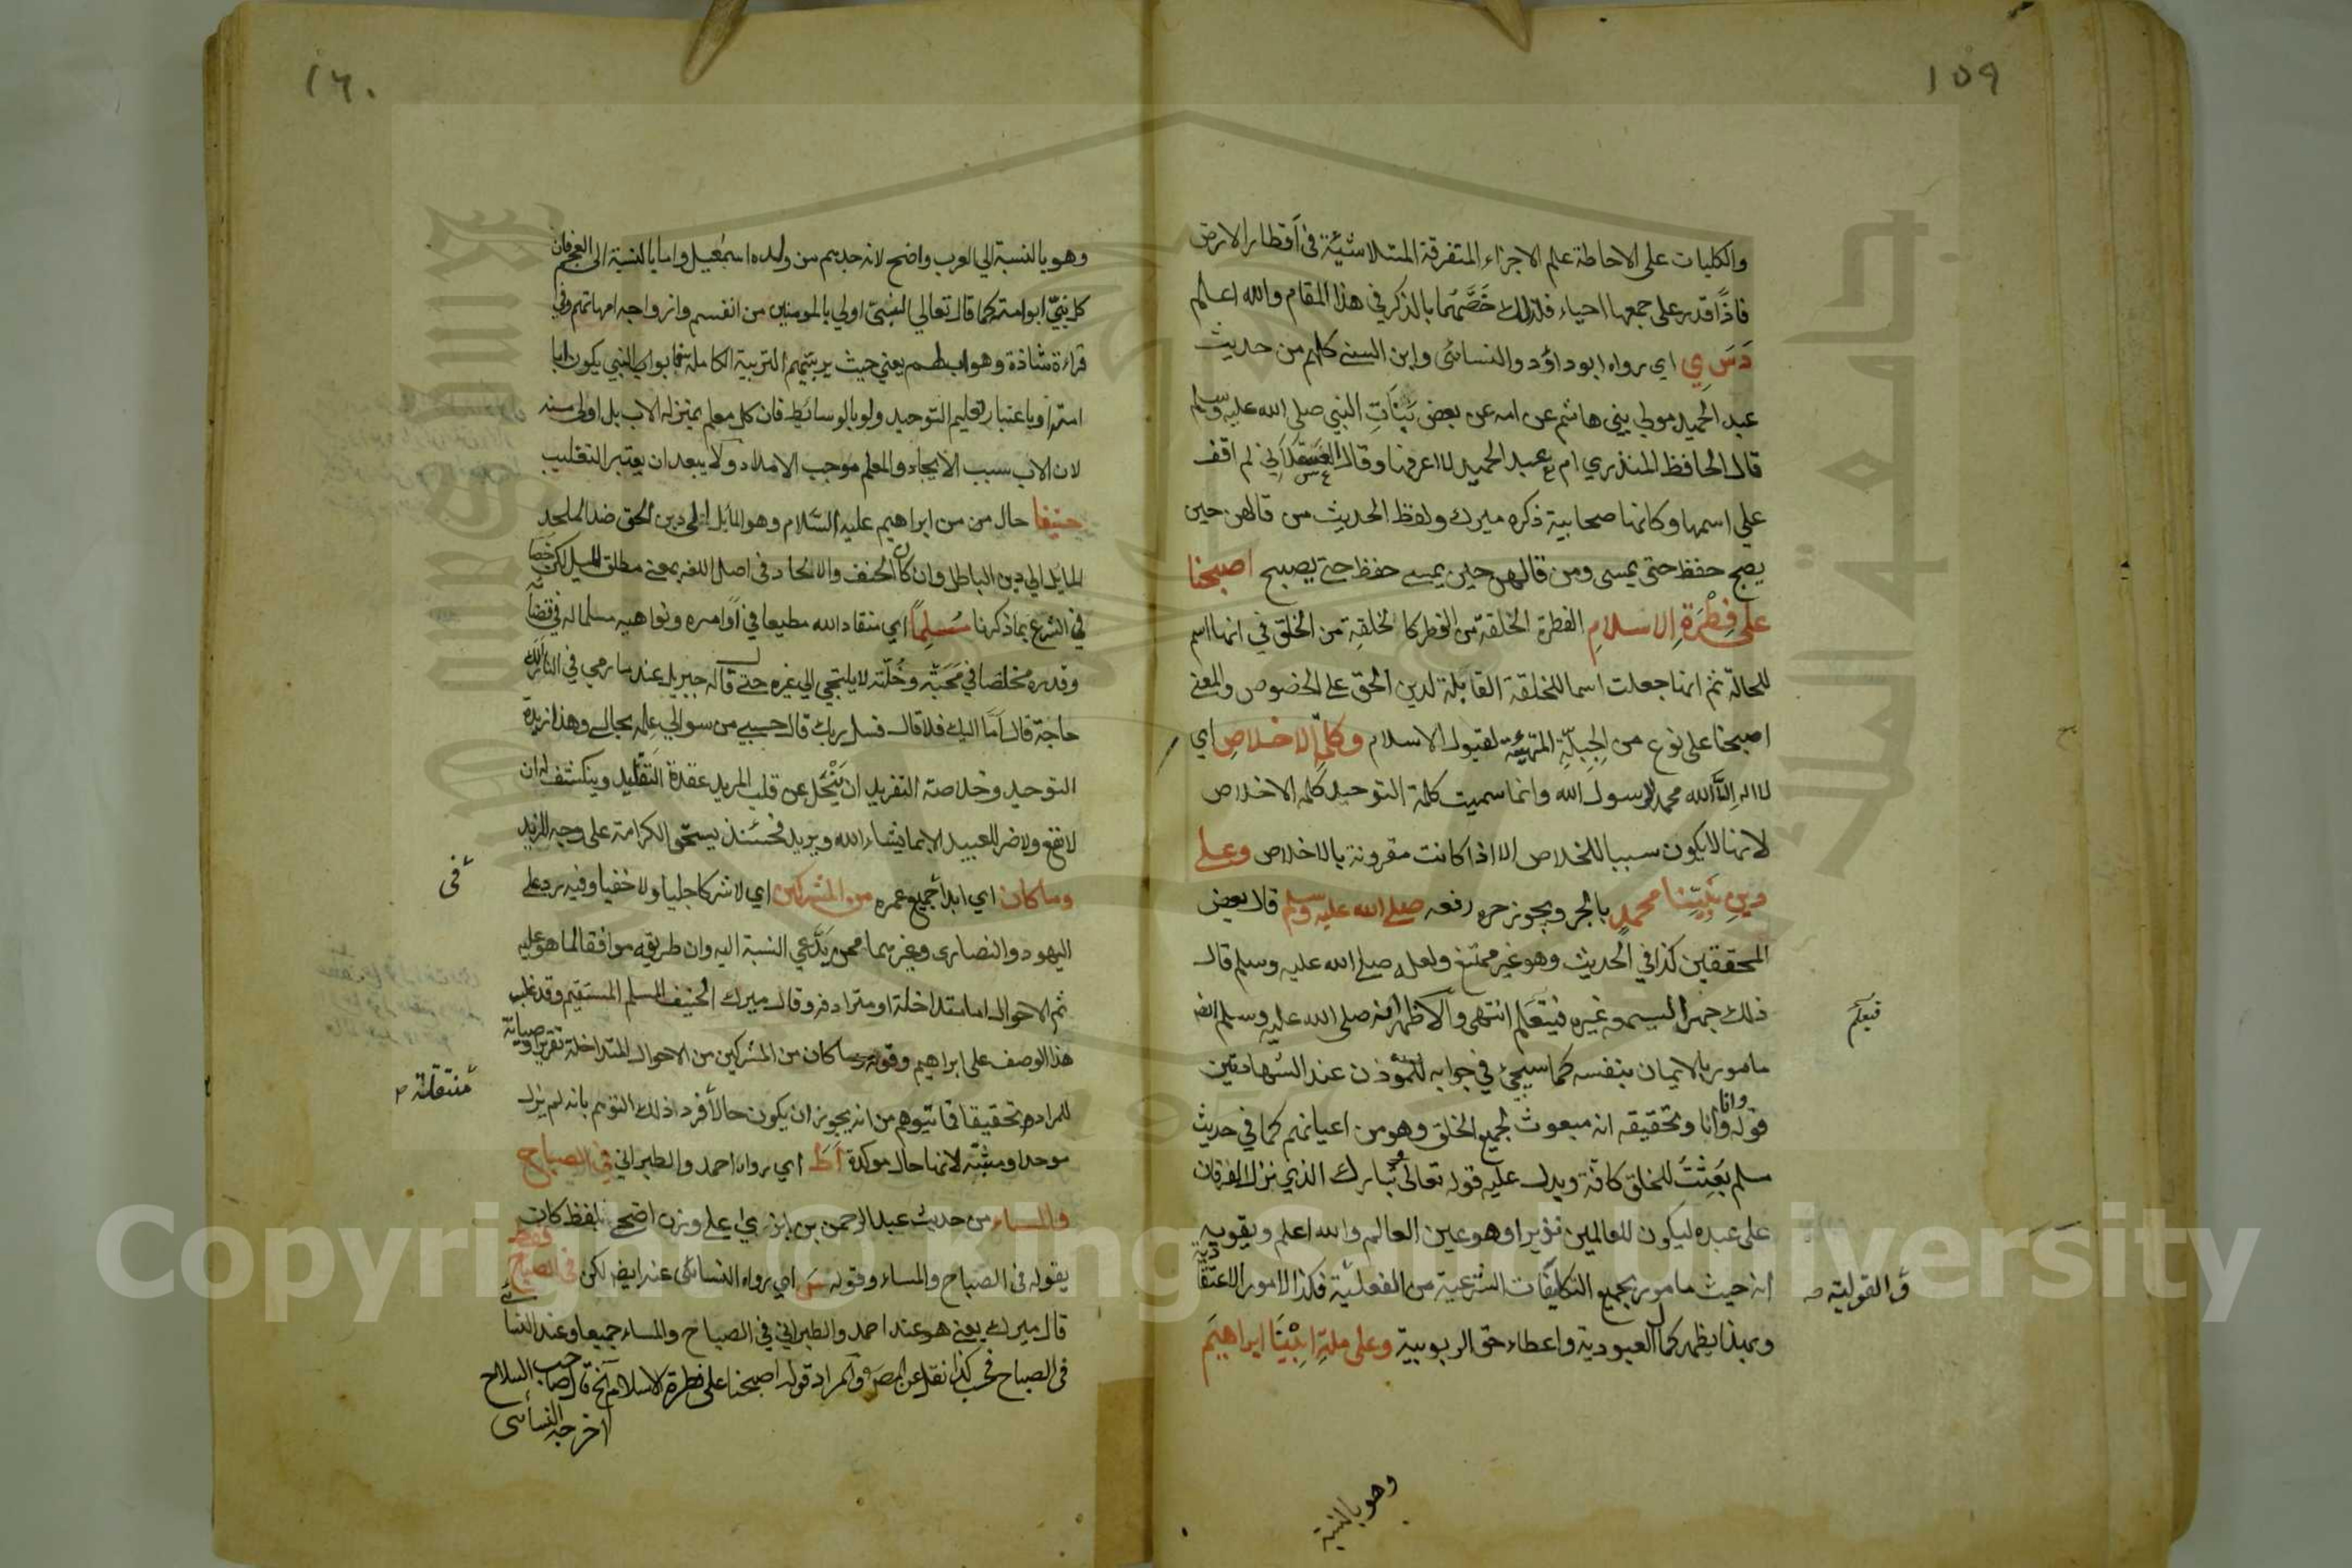 ١٥٩
والكليات على الاحاطة علم الاجزاء المتفرقة المتلاشية في اقطار الارض
فاذا قدر على جمعها احياء فلذلك خَصَّهُما بالذكر في هذا المقام والله اعلم
دَسَ ي اي رواه ابو داؤد والنسائى وابن السني كلهم من حديث
عبد الحميد مولى بني هاشم عن امه عن بعض بَنَاتِ النبي صلى الله عليه وسلم
قال الحافظ المنذري ام عبد الحميد لا اعرفها وقال العسقلاني لم اقف
على اسمها وكانها صحابية ذكره ميرك ولفظ الحديث من قالهن حين
يصبح حفظ حتى يمسى ومن قالهن حين يمسي حفظ حتى يصبح اصبحنا
على فِطْرَةِ الاسلامِ الفطرة الخلقة من الفطر كالخلقة من الخلق في انها اسم
للحالة ثم انها جعلت اسما للخلقة القابلة لدين الحق على الخصوص والمعنى
اصبحنا على نوع من الجِبِلّةِ المتهيئة لقبول الاسلام وكلمة الاخلاصِ اي
لا اله الا الله محمد رسول الله وانما سميت كلمة التوحيد كلمة الاخلاص
لانها لا يكون سببا للخلاص الا اذا كانت مقرونة بالاخلاص وعلى
دينِ نَبِيِّنا محمدٍ بالجر ويجوز رفعه صلى الله عليه وسلم قال بعض
المحققين كذا في الحديث وهو غير ممتنع ولعله صلى الله عليه وسلم قال
ذلك جهرا ليسمعه غيره فيتعلم انتهى والاظهر انه صلى الله عليه وسلم ايضا
فيعلم
مامور بالايمان بنفسه كما سيجئ في جوابه للمؤذن عند الشهادتين
قوله وانا وانا وتحقيقه انه مبعوث لجميع الخلق وهو من اعيانهم كما في حديث
مسلم بُعِثْتُ للخلق كافة ويدل عليه قوله تعالى تبارك الذي نزل الفرقان
على عبده ليكون للعالمين نذيرا وهو عين العالم والله اعلم ويقويه
انه حيث مامور بجميع التكليفات الشرعية من الفعلية فكذا الامور الاعتقادية
والقولية صـ
وبهذا يظهر كمال العبودية واعطاء حق الربوبية وعلى ملةِ ابينا ابراهيم
وهو بالنسبة
١٦٠
وهو بالنسبة الى العرب واضح لانه جدهم من ولده اسمعيل واما بالنسبة الى العجم فان
كل نبيّ ابو امته كما قال تعالى النبى اولى بالمومنين من انفسهم وازواجه امهاتهم وفي
قراءة شاذة وهو اب لهم يعني حيث يربيهم التربية الكاملة فابو اب النبي يكون ابا
امته او باعتبار تعليم التوحيد ولو بالوسائط فان كل معلم بمنزلة الاب بل اولى منه
لان الاب سبب الايجاد والمعلم موجب الامداد ولا يبعد ان يعتبر التغليب
حنيفا حال من من ابراهيم عليه السّلام وهو المائل الى دين الحق ضد الملحد
المايل الى دين الباطل وان كان الحنف والالحاد في اصل اللغه بمعنى مطلق الميل لكن خصا
في الشرع بما ذكرنا مُسلِمًا اي منقادا لله مطيعا في اوامره ونواهيه مسلما له في قضائه
وقدره مخلصا في مَحَبّته وخُلّته لا يلتجي الى غيره حتى قال له جبريل عند ما رمي في النار الك
حاجة قال اَمّا اليك فلا قال فسل ربك قال حسبي من سوالي علمه بحالي وهذا زبدة
التوحيد وخلاصة التفريد ان يَنْحَل عن قلب المريد عقدة التقليد وينكشف له ان
لا نفع ولا ضر للعبيد الا بما يشاء الله ويريد فحينئذ يستحق الكرامة على وجه المزيد
وما كان اي ابدا جميع عمره من المشركين اي لا شركا جليا ولا خفيا وفيه رد على
في
اليهود والنصارى وغيرهما ممن يَدَّعي النسبة اليه وان طريقه موافقا لما هو عليه
ثم الاحوال اما متداخلة او مترادفة وقال ميرك الحنيف المسلم المستقيم وقد غلب
هذا الوصف على ابراهيم وقوله وما كان من المشركين من الاحوال المتداخلة تقريرا وصيانة
للمراد وتحقيقا عما يتوهم من انه يجوز ان يكون حالا فرد ذلك التوهم بانه لم يزل
منتقلة
موحدا ومثبته لانها حال موكدة اَطَ اي رواه احمد والطبراني في الصباح
والمساء من حديث عبد الرحمن بن ابزى على وزن اضحى بلفظ كان
يقوله في الصباح والمساء وقوله سَ اي رواه النسائى عنه ايضا لكن في الصباح فقط
قال ميرك يعني هو عند احمد والطبراني في الصباح والمساء جميعا وعند النسائى
في الصباح فحسب كذا نقل عن المص والمراد قوله اصبحنا على فطرة الاسلام الخ قال صاحب السلاح
اخرجه النسائى
Copyright © King Saud University